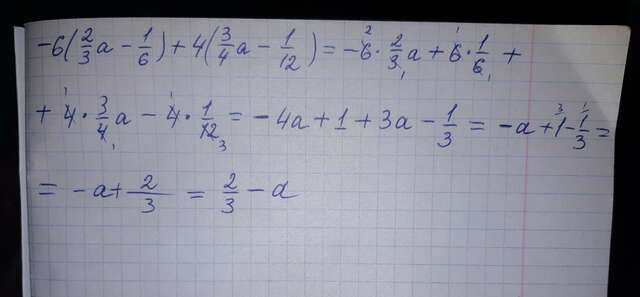 -6(2/3 a - 1/6) + 4(3/4 a - 1/12) = -6 · 2/3 a + 6 · 1/6 +
+ 4 · 3/4 a - 4 · 1/12 = -4a + 1 + 3a - 1/3 = -a + 1 - 1/3 =
= -a + 2/3 = 2/3 - a